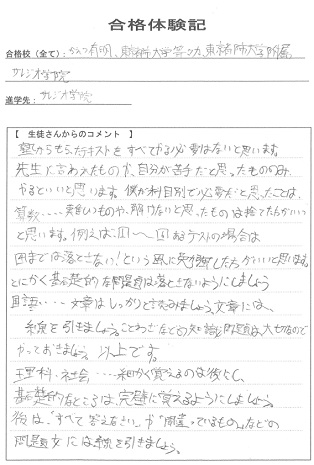 合格体験記
合格校（全て）：かえつ有明、東京都市大学等々力、東京都市大学附属
サレジオ学院
進学先：サレジオ学院
【　生徒さんからのコメント　】
塾からもらったテキストをすべてやる必要はないと思います。
先生に言われたものや、自分が苦手だと思ったもののみ
やるといいと思います。僕が科目別で必要だと思ったことは、
算数････難しいものや、解けないと思ったものは捨てた方がいい
と思います。例えば、1〜4あるテストの場合は
までは落とさない！という風に勉強した方がいいと思います。
とにかく基礎的な問題は落とさないようにしましょう
国語････文章はしっかりと読みましょう。文章には、
線を引きましょう。ことわざなどの知識問題は大切なので
やっておきましょう。以上です。
理科、社会････細かく覚えるのは後にし、
基礎的なところは、完璧に覚えるようにしましょう。
後は、「すべて答えなさい」や「間違っているもの」などの
問題文には線を引きましょう。